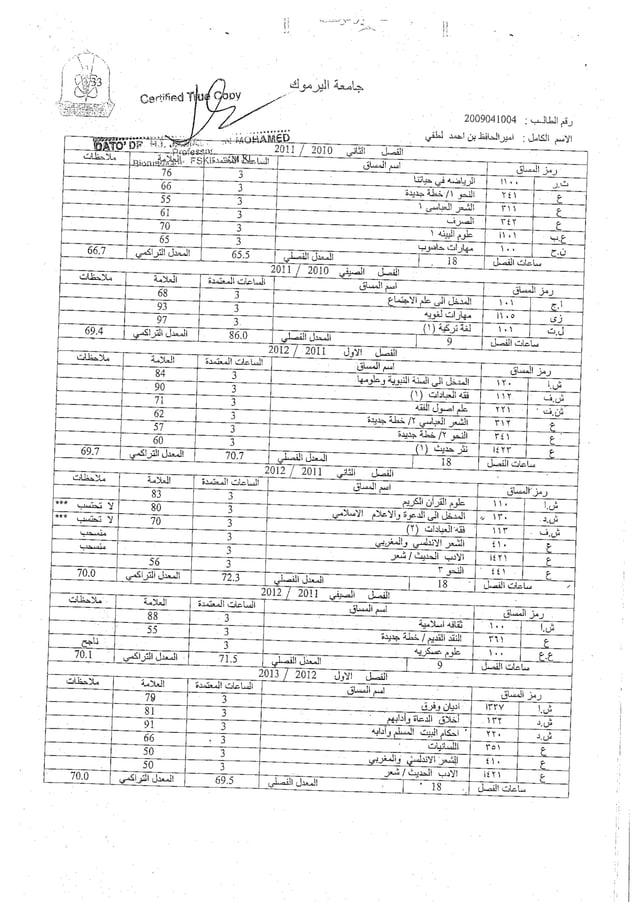 جامعة اليرموك
Certified True Copy
رقم الطالب : 2009041004
الاسم الكامل : اميرالحافظ بن احمد لطفي
DATO' DR MOHAMED
Professor
الفصل الثاني 2010 / 2011
رمز المساق اسم المساق الساعات المعتمدة العلامة ملاحظات
ت.ر ١١٠٠ الرياضه في حياتنا 3 76
ع ٢٤١ النحو ١/ خطة جديدة 3 66
ع ٣١١ الشعر العباسى ١ 3 55
ع ٣٤٢ الصرف 3 61
ع.ب ١١٠١ علوم البيئه ١ 3 70
ن.ح ١٠٠ مهارات حاسوب 3 65
ساعات الفصل 18 المعدل الفصلي 65.5 المعدل التراكمي 66.7
الفصل الصيفي 2010 / 2011
رمز المساق اسم المساق الساعات المعتمدة العلامة ملاحظات
ا.ج ١٠١ المدخل الى علم الاجتماع 3 68
ز.ى ١١٠٥ مهارات لغويه 3 93
ل.ت ١٠١ لغة تركية (١) 3 97
ساعات الفصل 9 المعدل الفصلي 86.0 المعدل التراكمي 69.4
الفصل الاول 2011 / 2012
رمز المساق اسم المساق الساعات المعتمدة العلامة ملاحظات
ش.ا ١٢٠ المدخل الى السنة النبوية وعلومها 3 84
ش.ف ١١٢ فقه العبادات (١) 3 90
ش.ف ٢٢١ علم اصول الفقه 3 71
ع ٣١٢ الشعر العباسي ٢/ خطة جديدة 3 62
ع ٣٤١ النحو ٢/ خطة جديدة 3 57
ع ١٤٢٣ نثر حديث (١) 3 60
ساعات الفصل 18 المعدل الفصلي 70.7 المعدل التراكمي 69.7
الفصل الثاني 2011 / 2012
رمز المساق اسم المساق الساعات المعتمدة العلامة ملاحظات
ش.ا ١١٠ علوم القرآن الكريم 3 83
ش.د ١٣٠ * المدخل الى الدعوة والاعلام الاسلامي 3 80 لا تحتسب ***
ش.ف ١١٣ فقه العبادات (٢) 3 70 لا تحتسب ***
ع ٤١٠ الشعر الاندلسي والمغربي 3 منسحب
ع ١٤٢١ الادب الحديث/ شعر 3 منسحب
ع ٤٤١ النحو ٣ 3 56
ساعات الفصل 18 المعدل الفصلي 72.3 المعدل التراكمي 70.0
الفصل الصيفي 2011 / 2012
رمز المساق اسم المساق الساعات المعتمدة العلامة ملاحظات
ش.ا ١٠٠ ثقافه اسلامية 3 88
ع ٣٦١ النقد القديم/ خطة جديدة 3 55
ع.ع ١٠٠ علوم عسكريه 3 ناجح
ساعات الفصل 9 المعدل الفصلي 71.5 المعدل التراكمي 70.1
الفصل الاول 2012 / 2013
رمز المساق اسم المساق الساعات المعتمدة العلامة ملاحظات
ش.ا ١٣٢٧ أديان وفرق 3 79
ش.د ١٣٢ أخلاق الدعاة وأدابهم 3 81
ش.د ٢٢٠ احكام البيت المسلم وآدابه 3 91
ع ٣٥١ اللسانيات 3 66
ع ٤١٠ الشعر الاندلسي والمغربي 3 50
ع ١٤٢١ الادب الحديث/ شعر 3 50
ساعات الفصل 18 المعدل الفصلي 69.5 المعدل التراكمي 70.0